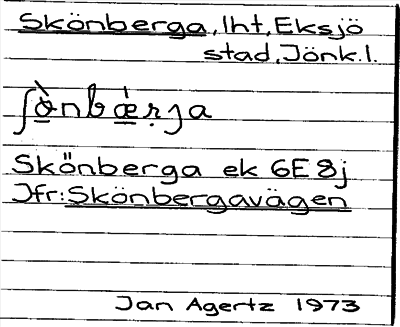 Skönberga, lht, Eksjö
stad, Jönk. l.
Skönberga ek 6E8j
Jfr: Skönbergavägen
Jan Agertz 1973